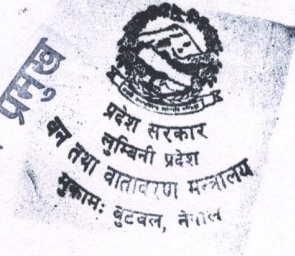 प्रमुख
प्रदेश सरकार
लुम्बिनी प्रदेश
वन तथा वातावरण मन्त्रालय
मुकाम: बुटवल, नेपाल